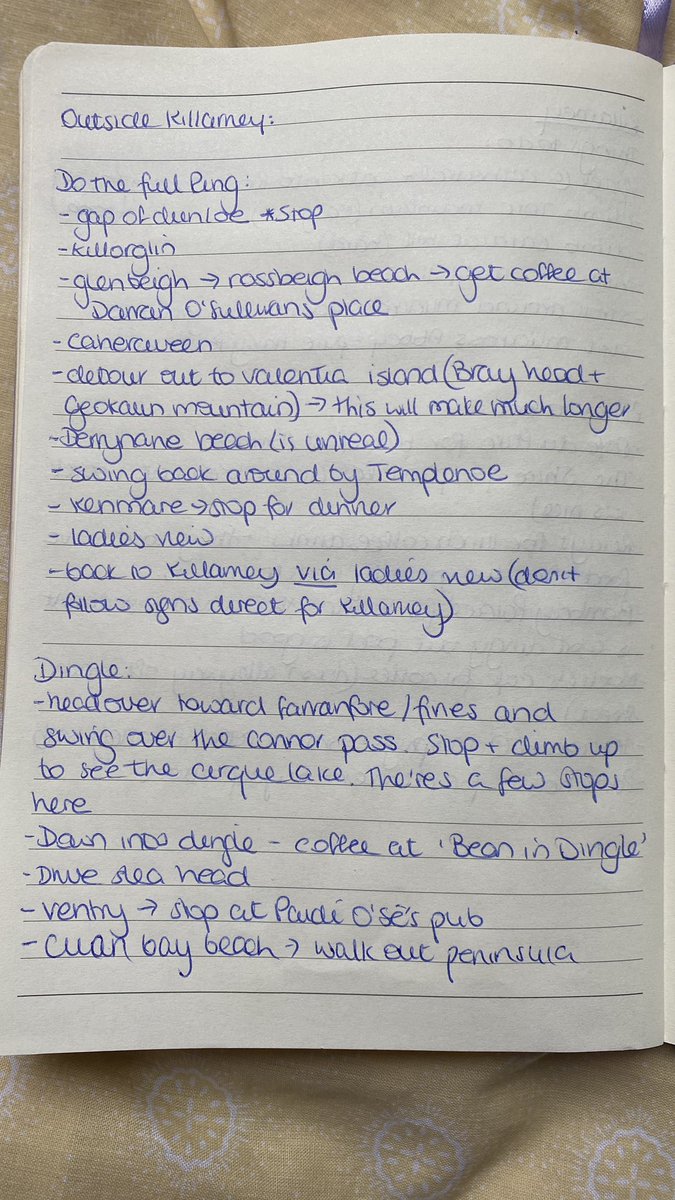 Outside Killarney:
Do the full Ring:
- gap of dunloe *stop
- Killorglin
- glenbeigh → rossbeigh beach → get coffee at
Darran O'Sullivans place
- caherciveen
- detour out to valentia island (Bray head +
Geokaun mountain) → this will make much longer
- Derrynane beach (is unreal)
- swing back around by Templenoe
- Kenmare → stop for dinner
- ladies view
- back to Killarney via ladies view (don't
follow signs direct for Killarney)
Dingle:
- head over toward farranfore / firies and
swing over the connor pass. Stop + climb up
to see the cirque lake. There's a few stops
here
- Down into dingle - coffee at 'Bean in Dingle'
- Drive slea head
- ventry → stop at Paudí O'Sé's pub
- cuan bay beach → walk out peninsula